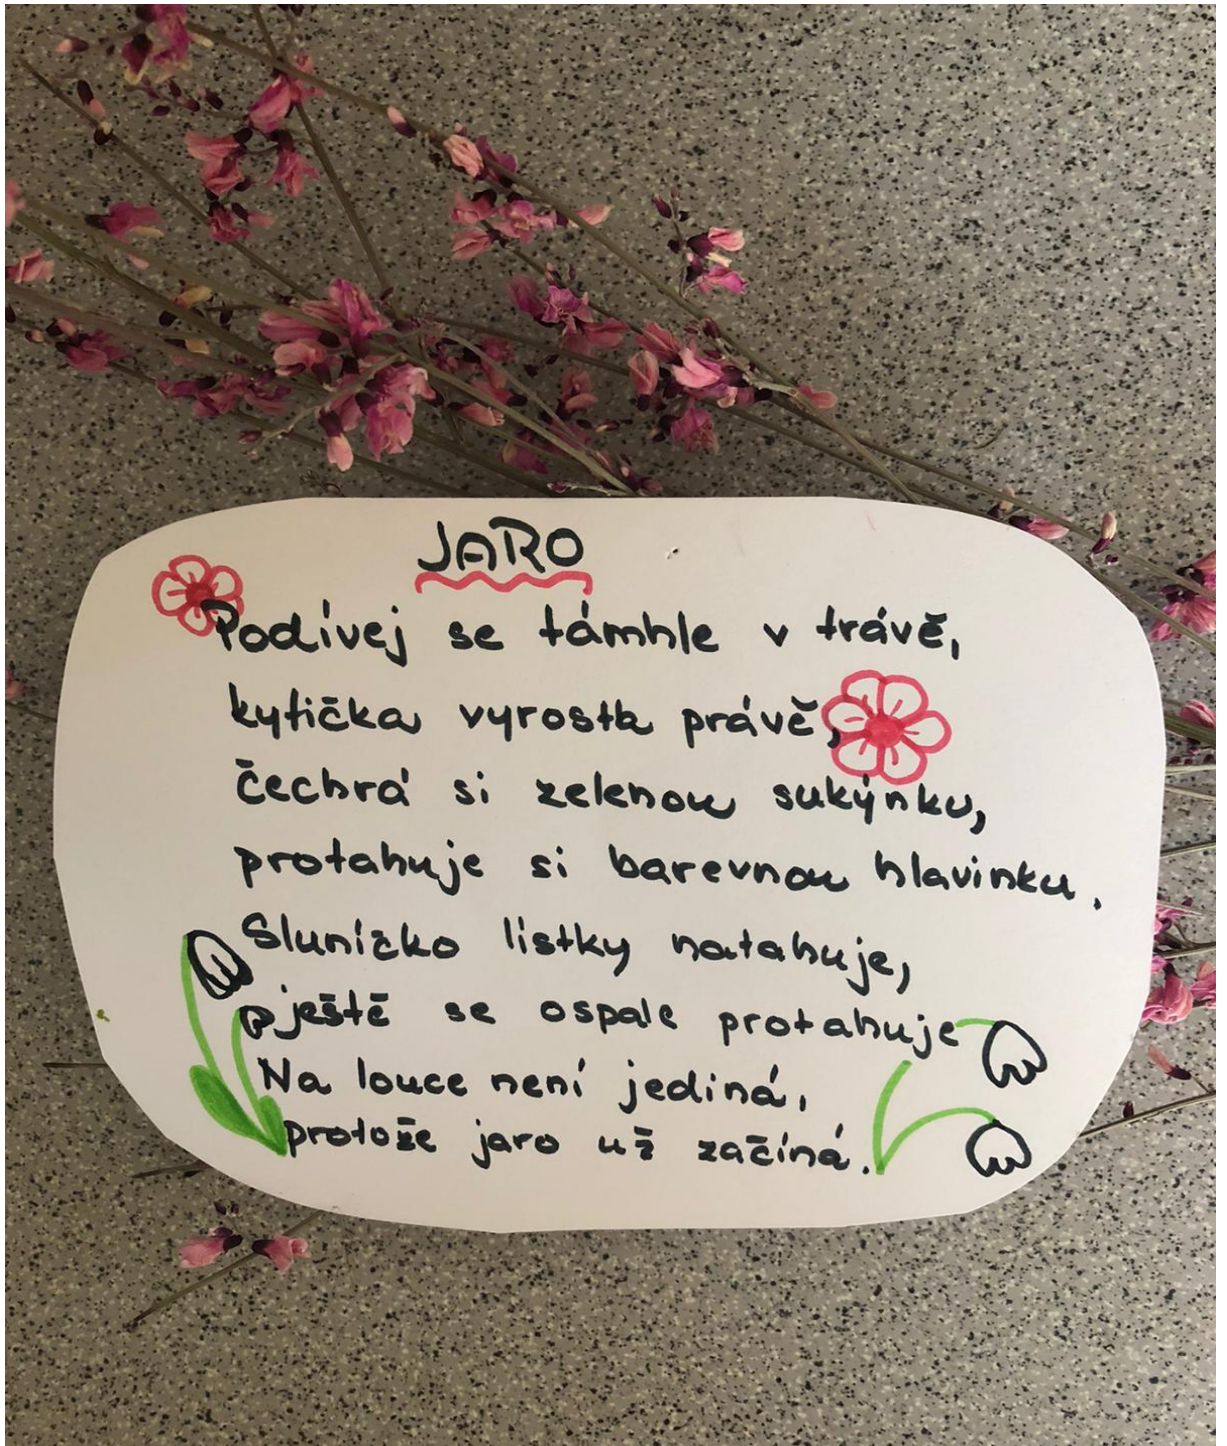 JARO
Podívej se támhle v trávě,
kytička vyrostla právě,
čechrá si zelenou sukýnku,
protahuje si barevnou hlavinku.
Sluníčko lístky natahuje,
ještě se ospale protahuje
Na louce není jediná,
protože jaro už začíná.